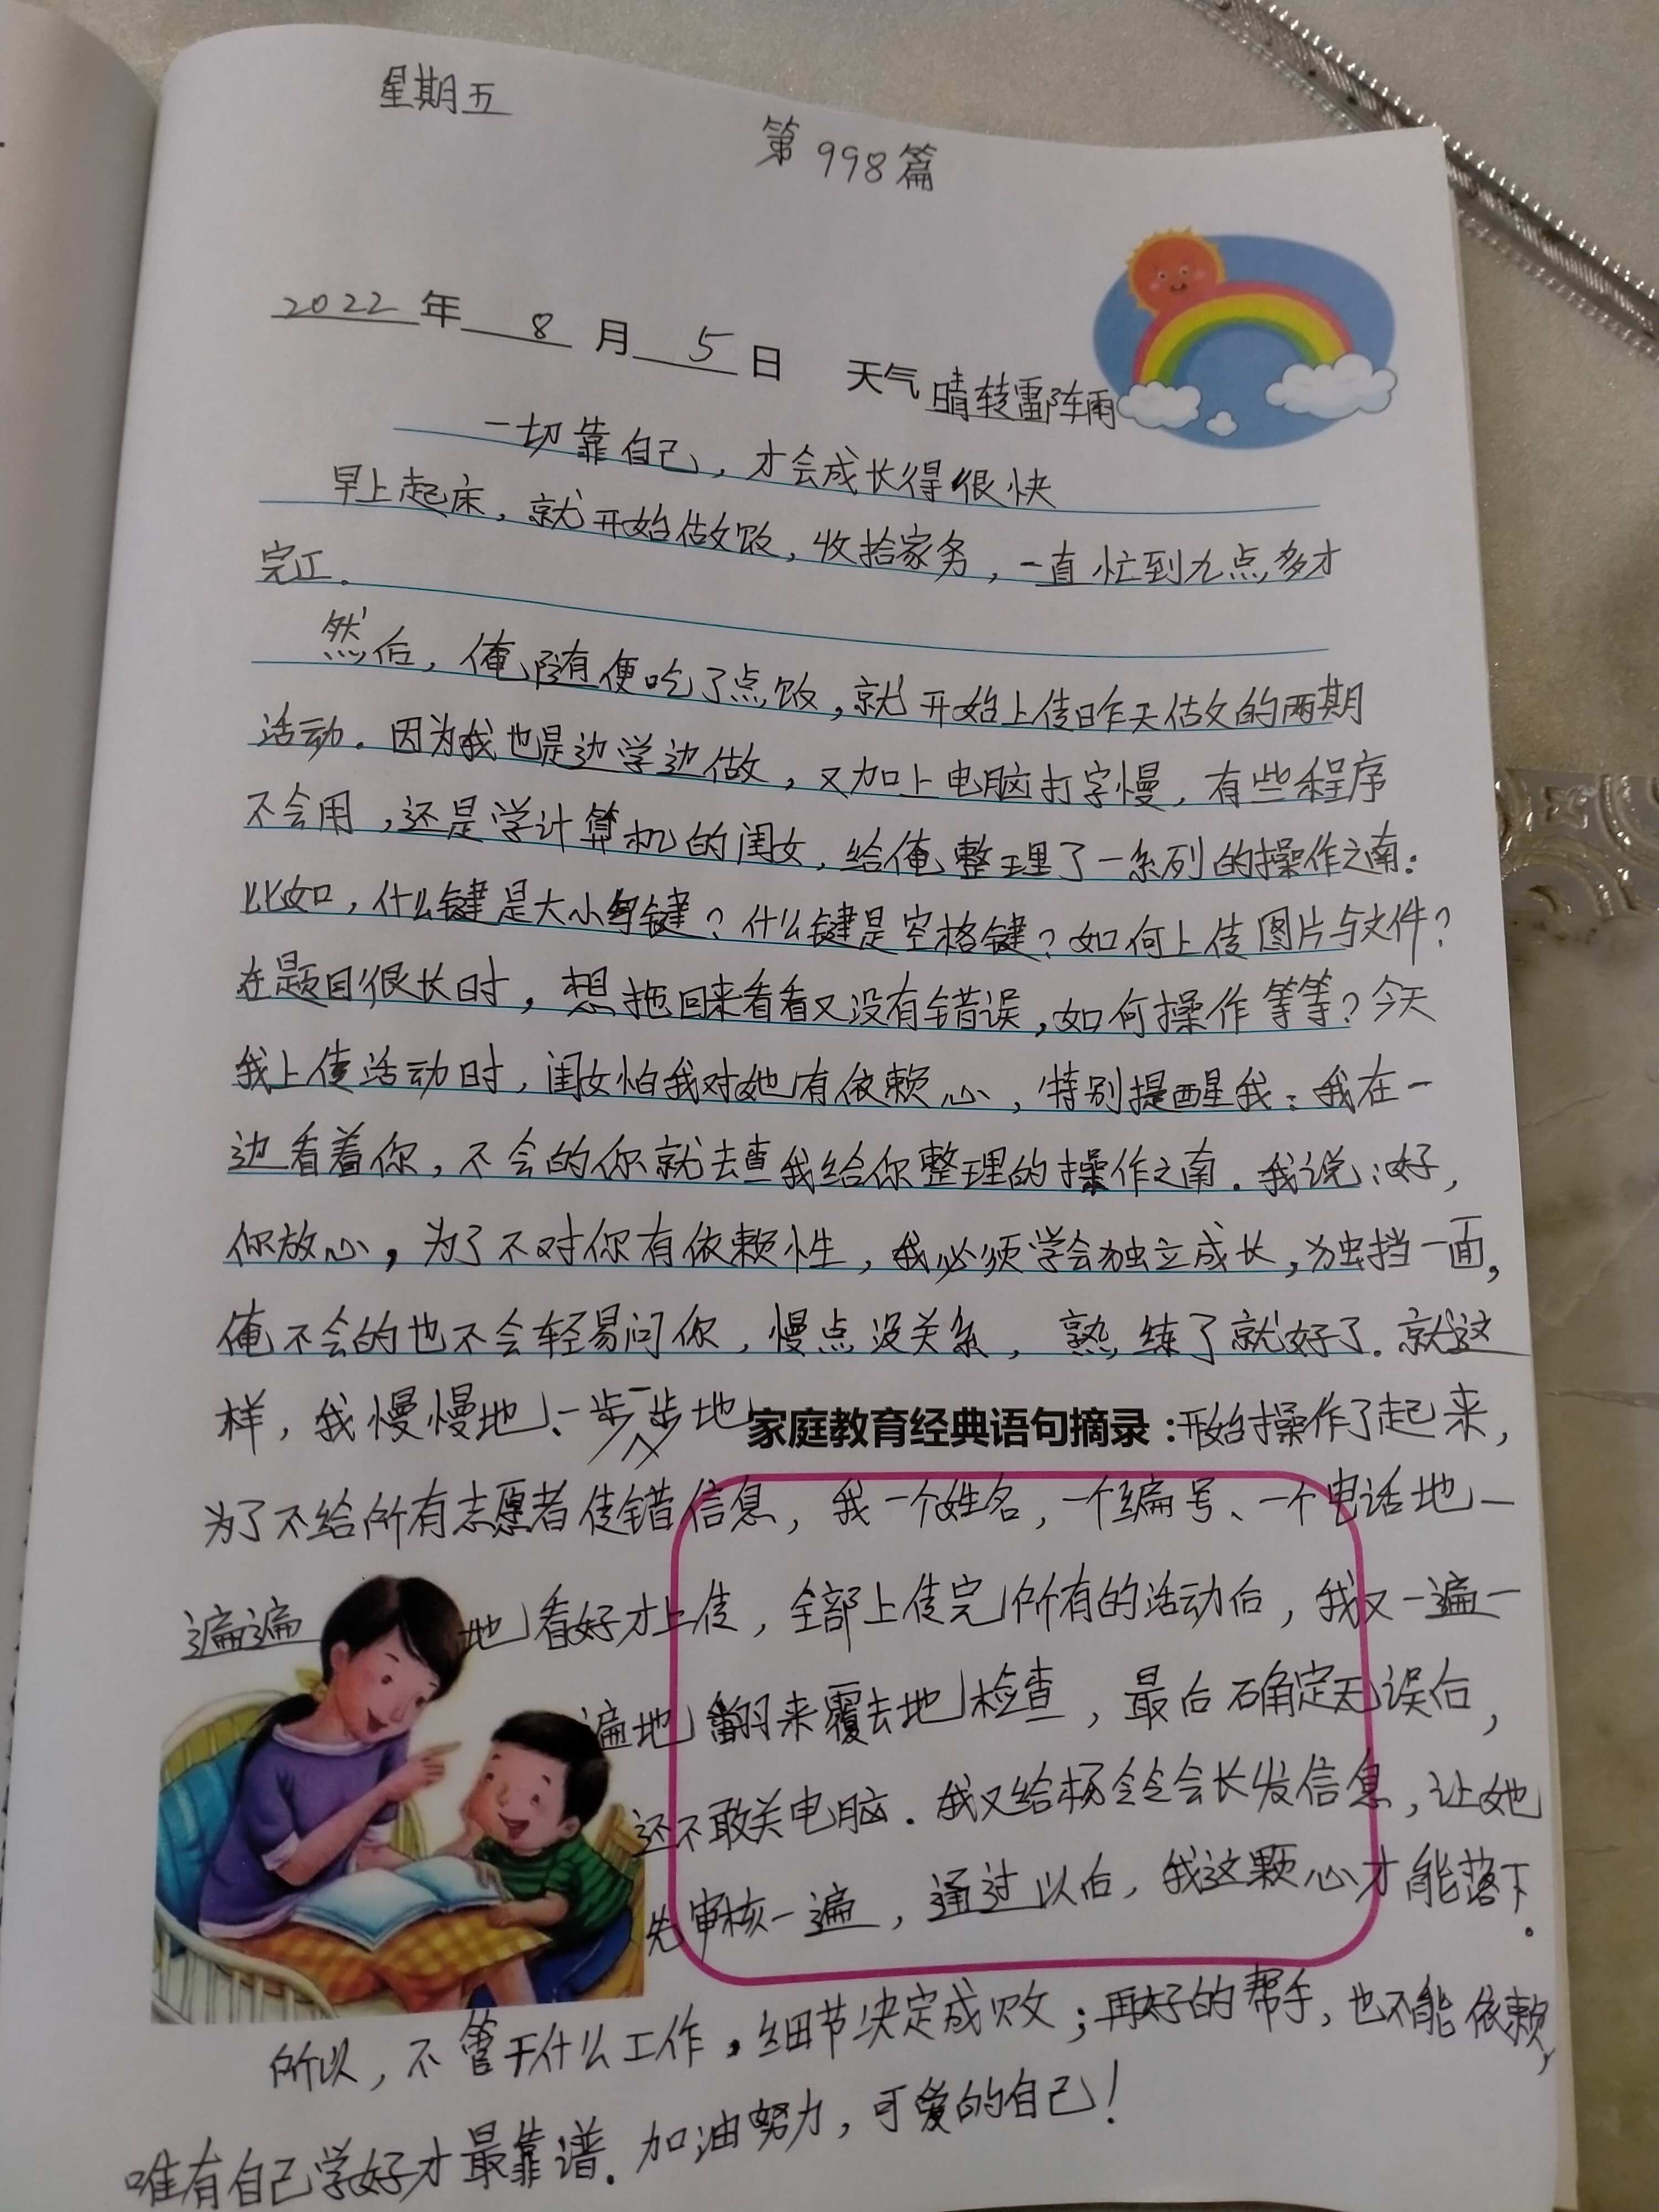 星期五
第998篇
2022年 8 月 5 日 天气 晴转雷阵雨
一切靠自己，才会成长得很快
早上起床，就开始做饭，收拾家务，一直忙到九点多才
完工.
然后，俺随便吃了点饭，就开始上传昨天估文的两期
活动．因为我也是边学边做，又加上电脑打字慢，有些程序
不会用，还是学计算机的闺女，给俺整理了一系列的操作之南：
比如，什么键是大小写键？什么键是空格键？如何上传图片与文件？
在题目很长时，想拖回来看看又没有错误，如何操作等等？今天
我上传活动时，闺女怕我对她有依赖心，特别提醒我：我在一
边看着你，不会的你就去查我给你整理的操作之南．我说：好，
你放心，为了不对你有依赖性，我必须学会独立成长，独挡一面，
俺不会的也不会轻易问你，慢点没关系，熟练了就好了．就这
样，我慢慢地、一步一步地 家庭教育经典语句摘录：开始操作了起来，
为了不给所有志愿者传错信息，我一个姓名，一个编号、一个电话地一
遍遍地看好才上传，全部上传完所有的活动后，我又一遍一
遍地翻来覆去地检查，最后确定无误后，
还不敢关电脑．我又给杨会长发信息，让她
先审核一遍，通过以后，我这颗心才能落下。
所以，不管干什么工作，细节决定成败；再好的帮手，也不能依赖，
唯有自己学好才最靠谱．加油努力，可爱的自己！